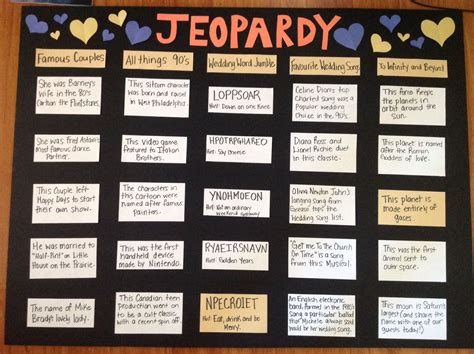 JEOPARDY
Famous Couples
All things 90's
Wedding Word Jumble
Favourite Wedding Song
To Infinity and Beyond
She was Barney's
Wife in the 80's
Cartoon the Flintstones.
This sitcom character
was born and raised
in West Philadelphia.
LOPPSOAR
Hint: Down on one Knee
Celine Dion's top
Charted Song was a
Popular wedding
Choice in the 90's
This force Keeps
the planets in
orbit around the
Sun.
She was Fred Astair's
most famous dance
Partner.
This video game
featured to Italian
Brothers.
HPOTRPGHAREO
Hint: Say Cheese
Diana Ross and
Lionel Richie duet
in this classic.
This planet is
named after the Roman
Goddess of love.
This Couple left
Happy Days to Start
their own show.
The characters in
this cartoon were
named after famous
painters.
YNOHMOEON
Hint: Not an ordinary
weekend getaway
Olivia Newton John's
longing song from
Grease tops the
Wedding Song list.
This planet is
made entirely of
gases.
He was married to
"Half-Pint" on Little
House on the Prairie.
This was the first
handheld device
made by Nintendo.
RYAEIRSNAVN
Hint: Golden Years
"Get me To The Church
On Time" is a Song
from this Musical.
This was the first
Animal sent to
outer space.
The name of Mike
Brady's lovely lady.
This Canadian teen
Production went on
to be a cult classic
with a recent spin off.
NPECROIET
Hint: Eat, drink and be
Merry.
An English electronic
band, Formed in the 1980's
Sang a particular ballad
that Michelle always said
would be her wedding song.
This moon is Saturn's
largest (and is around
50% larger than our
own moon!)